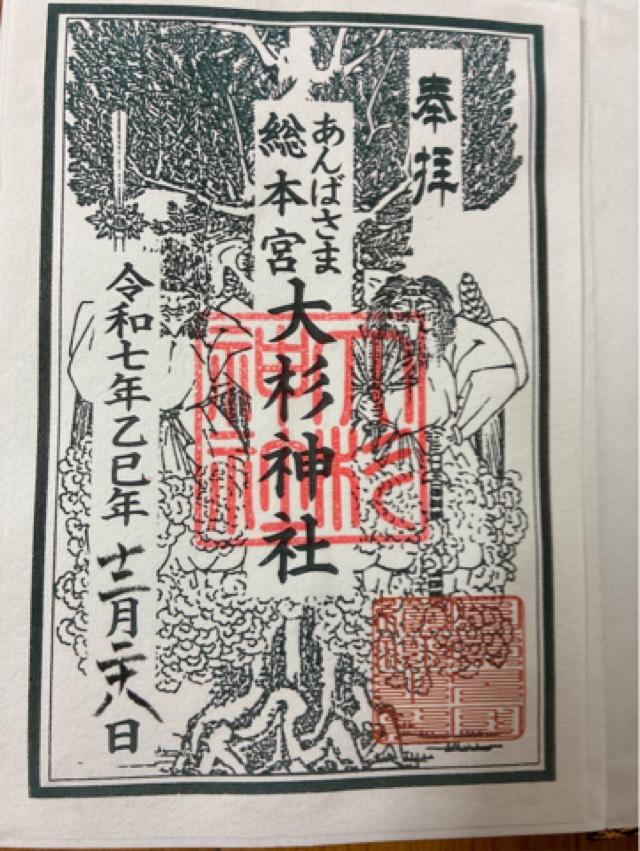 奉拝
あんばさま
総本宮
大杉神社
令和七年乙巳年十二月二十八日